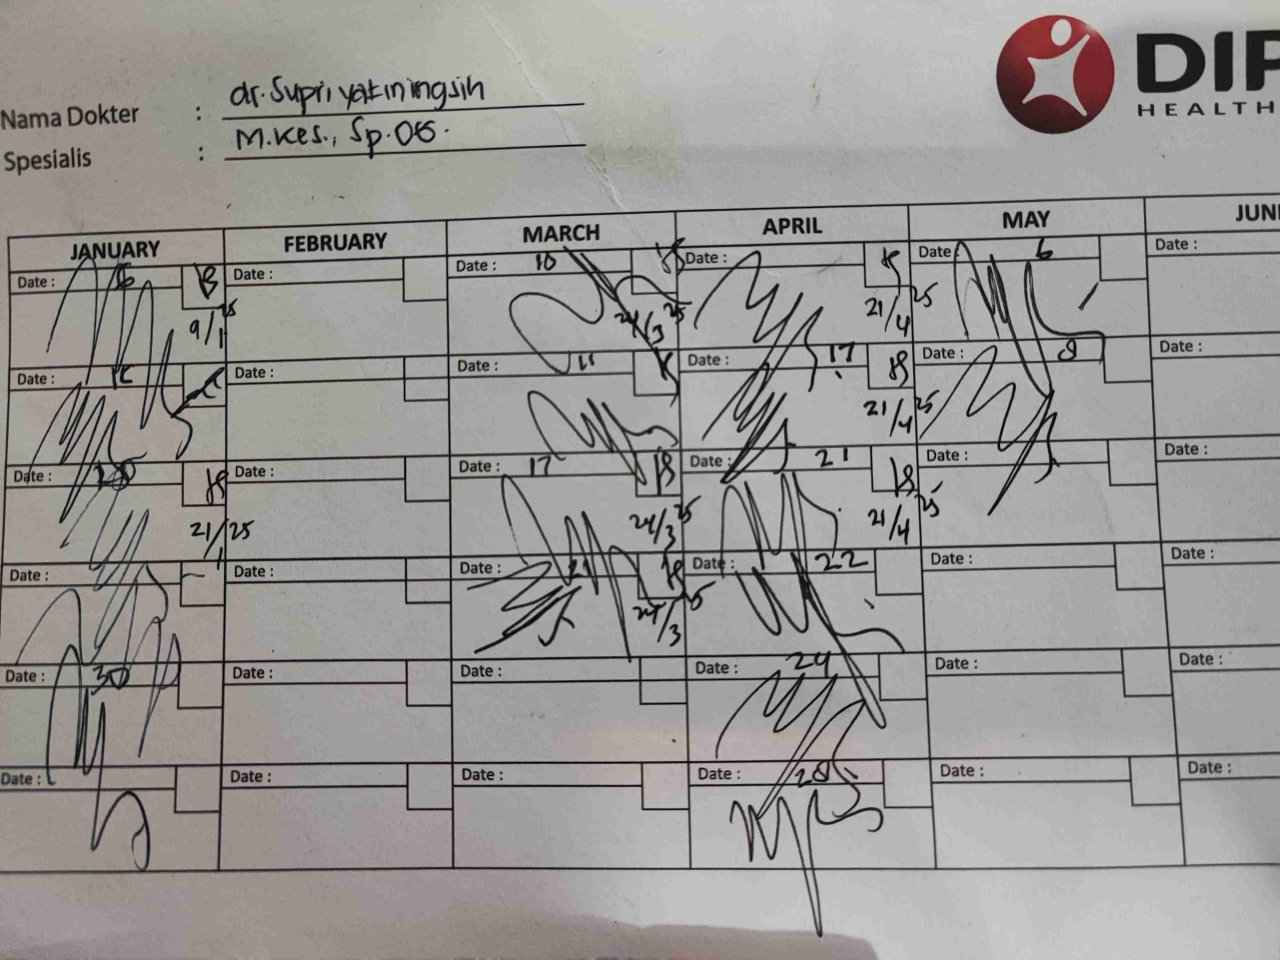 DIP
HEALTH
Nama Dokter : dr. Supriyatiningsih
Spesialis : M.Kes., Sp.OG.
JANUARY FEBRUARY MARCH APRIL MAY JUN
Date : 6 Date : Date : 10 Date : Date : 6 Date :
9/1 25 24/3 25 21/4 25
Date : Date : Date : 11 Date : 17 Date : 8 Date :
21/4 25
Date : Date : Date : 17 Date : 21 Date : Date :
21/1 25 24/3 25 21/4 25
Date : Date : Date : 21 Date : 22 Date : Date :
24/3 25
Date : 30 Date : Date : Date : 24 Date : Date :
Date : Date : Date : Date : 28 Date : Date :